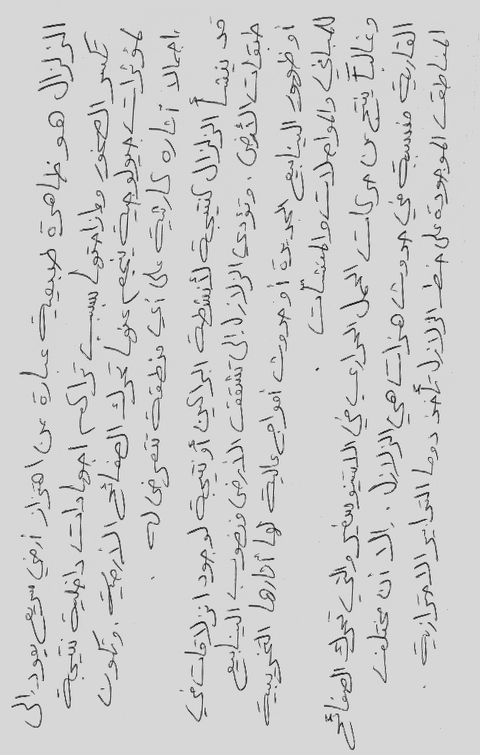 الزلزال هو ظاهرة طبيعية عبارة عن اهتزاز أرضي سريع يعود إلى
تكسر الصخور وإزاحتها بسبب تراكم اجهادات داخلية نتيجة
مؤثرات جيولوجية ينجم عنها تحرك الصفائح الأرضية. وتكون
اجمالا آثاره كارثية على أي منطقة تتعرض له.
قد ينشأ الزلزال كنتيجة لأنشطة البراكين أو نتيجة لوجود انزلاقات في
طبقات الأرض. وتؤدي الزلازل إلى تشقق الأرض ونضوب الينابيع
أو ظهور الينابيع الجديدة أو حدوث أمواج عالية لها آثارها التخريبية
للمباني والمواصلات والمنشآت.
وغالباً ينتج عن حركات الحمل الحراري في الأسثينوسفير والتي تحرك الصفائح
القارية متسببة في حدوث هزات هي الزلازل. إلا أن مختلف
المناطق الموجودة على خط الزلازل تأخذ دوما التدابير الاحترازية.